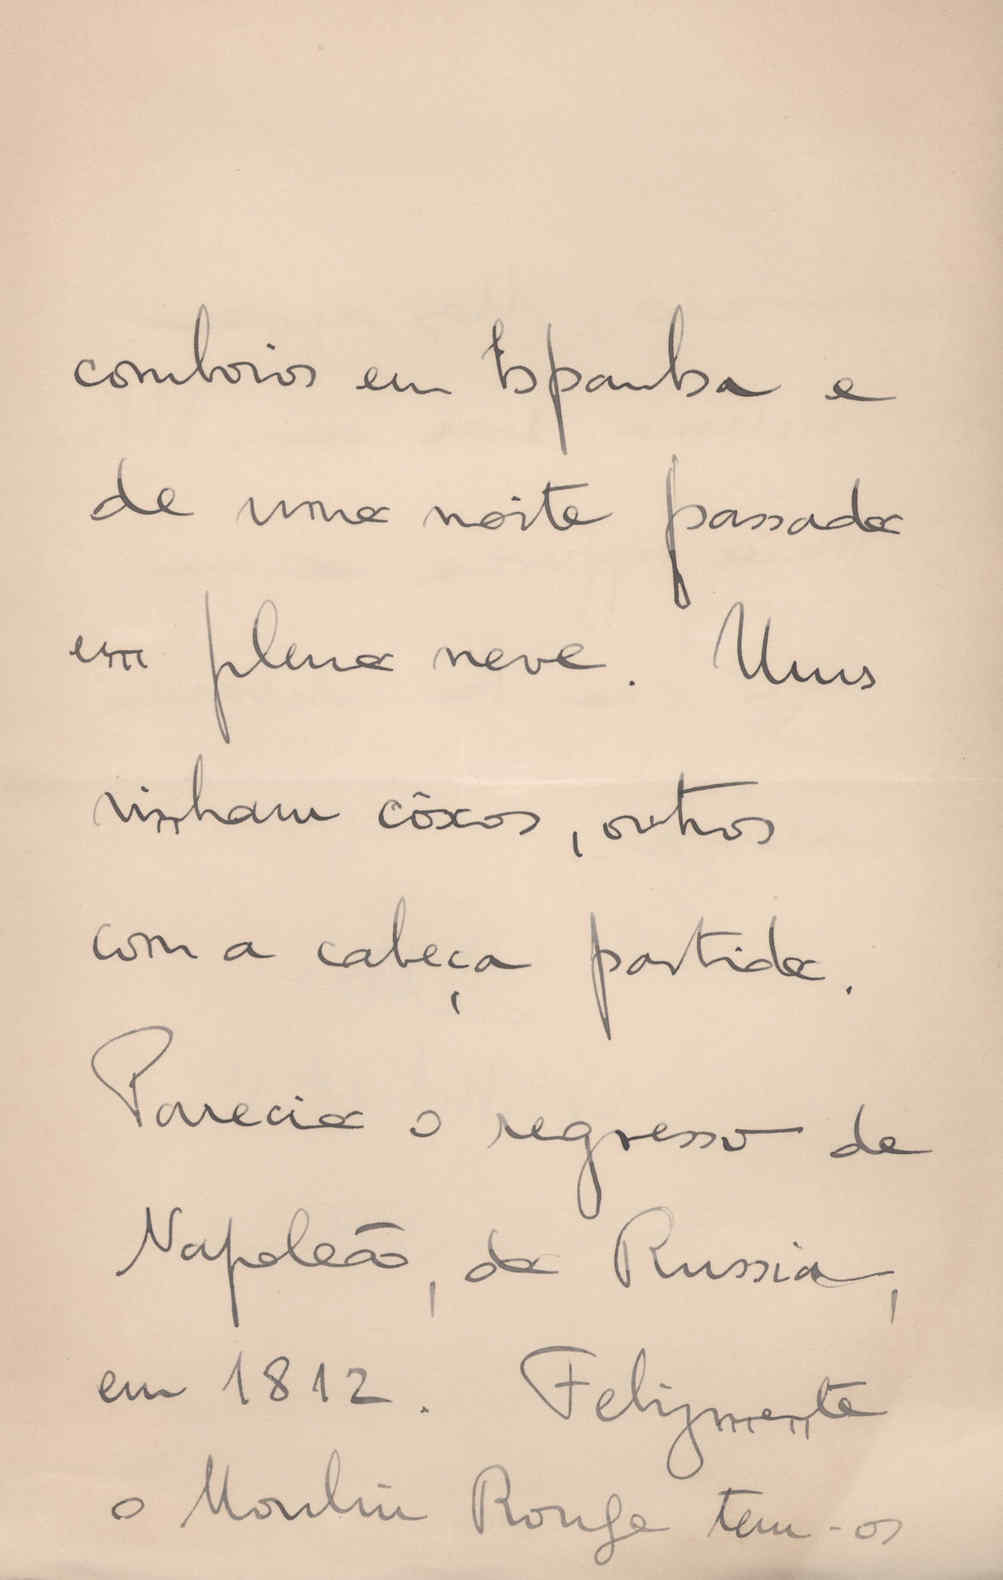 comboios em Espanha e
de uma noite passada
em plena neve. Uns
vinham côxos, outros
com a cabeça partida.
Parecia o regresso de
Napoleão, da Russia,
em 1812. Felizmente
o Moulin Rouge tem-os